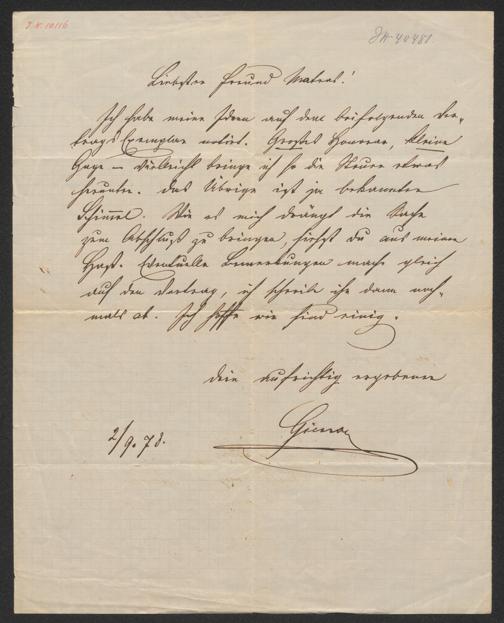 J.N. 10116
JN 40481
Liebster Freund Matras!
Ich habe meine Ideen auf dem beifolgenden Ver-
trags Exemplar notirt. Großes Honorar, kleine
Gage – vielleicht bringe ich so die Steuer etwas
herunter. Das Übrige ist ja bekannter
Schimmel. Wie es mich drängt die Sache
zum Abschluß zu bringen, siehst Du aus meiner
Hast. Eventuelle Bemerkungen mache gleich
auf den Vertrag, ich schreibe ihn dann noch-
mals ab. Ich hoffe wir sind einig.
Dein aufrichtig ergebener
2/9. 78.